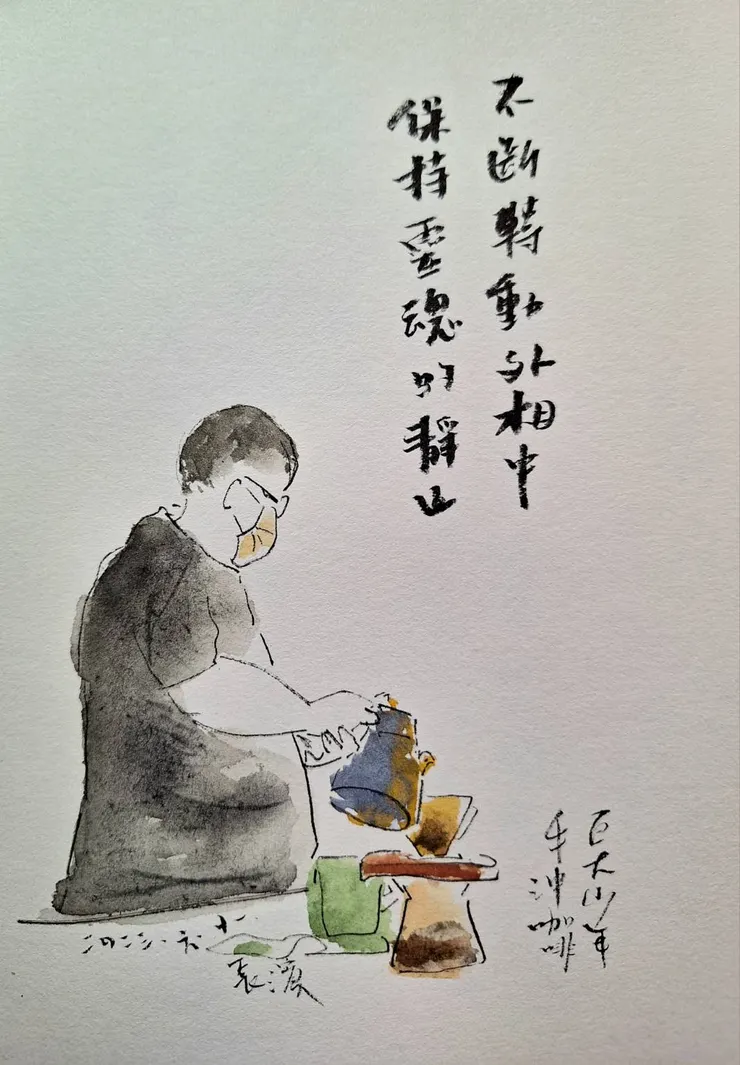 不斷轉動外相中
保持靈魂的靜止
巨大少年
手沖咖啡